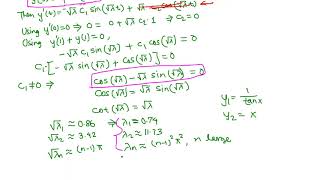 Then y'(t) = -√λ C₁ sin(√λ t) + √λ
Using y'(0)=0 ⇒ 0 = 0 + √λ C₂·1 ⇒ C₂=0
Using y'(1) + y(1) = 0,
-√λ C₁ sin(√λ) + C₁ cos(√λ) = 0
C₁ [-√λ sin(√λ) + cos(√λ)] = 0
C₁ ≠ 0 ⇒ cos(√λ) - √λ sin(√λ) = 0
cos(√λ) = √λ sin(√λ)
cot(√λ) = √λ
√λ₁ ≈ 0.86 λ₁ ≈ 0.74
√λ₂ ≈ 3.42 λ₂ ≈ 11.73
√λn ≈ (n-1)π λn ≈ (n-1)²π², n large
y₁ = 1/tanx
y₂ = x